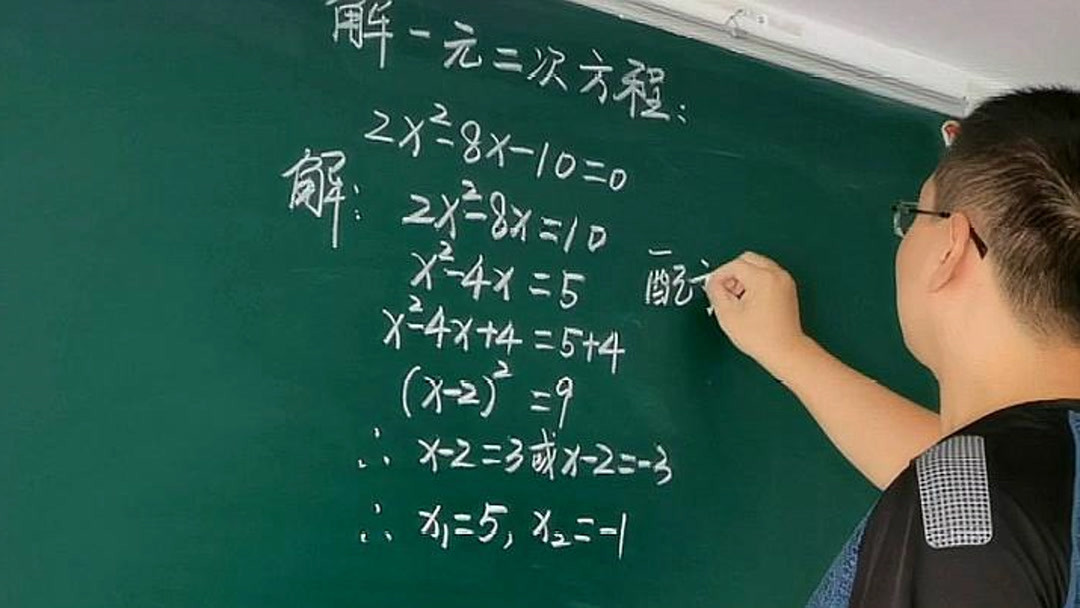 解一元二次方程：
2x²-8x-10=0
解：2x²-8x=10
x²-4x=5
配
x²-4x+4=5+4
(x-2)²=9
∴ x-2=3或x-2=-3
∴ x₁=5, x₂=-1